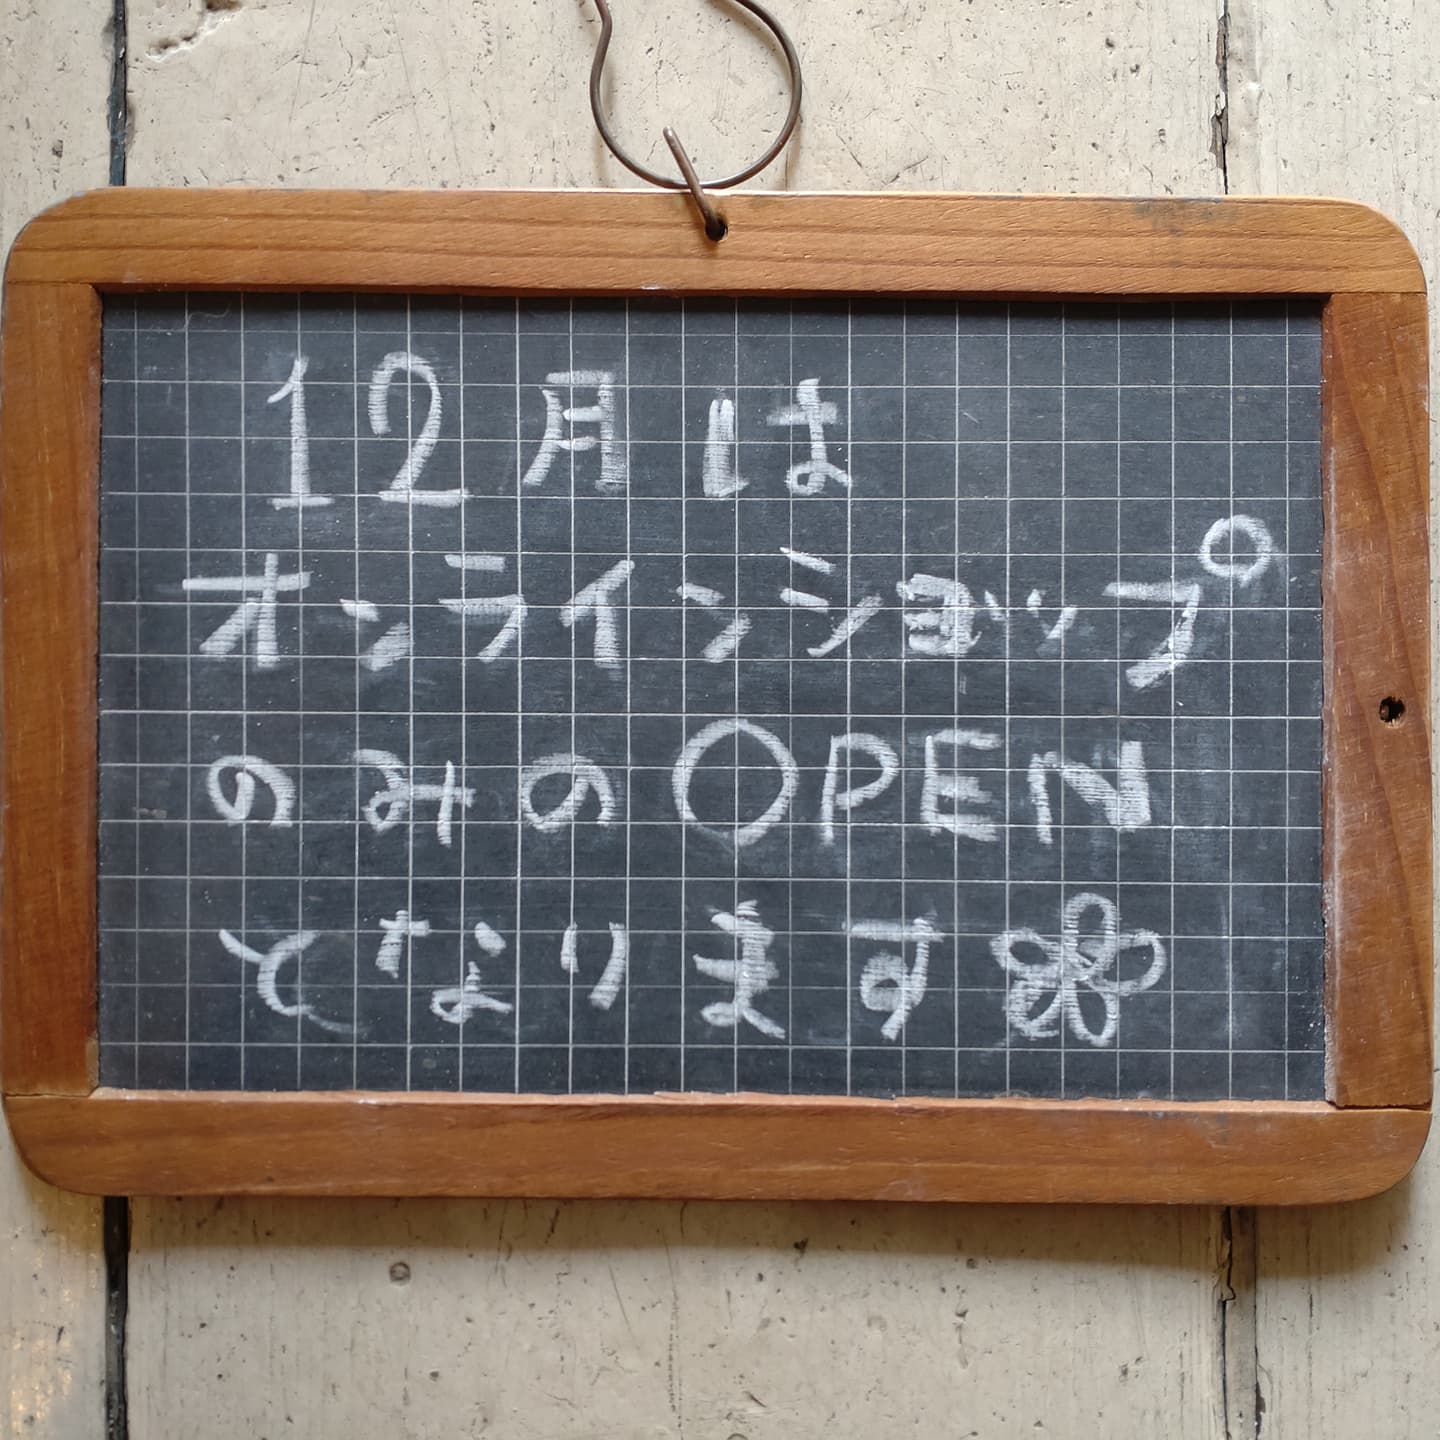 12月は
オンラインショップ
のみのOPEN
となります